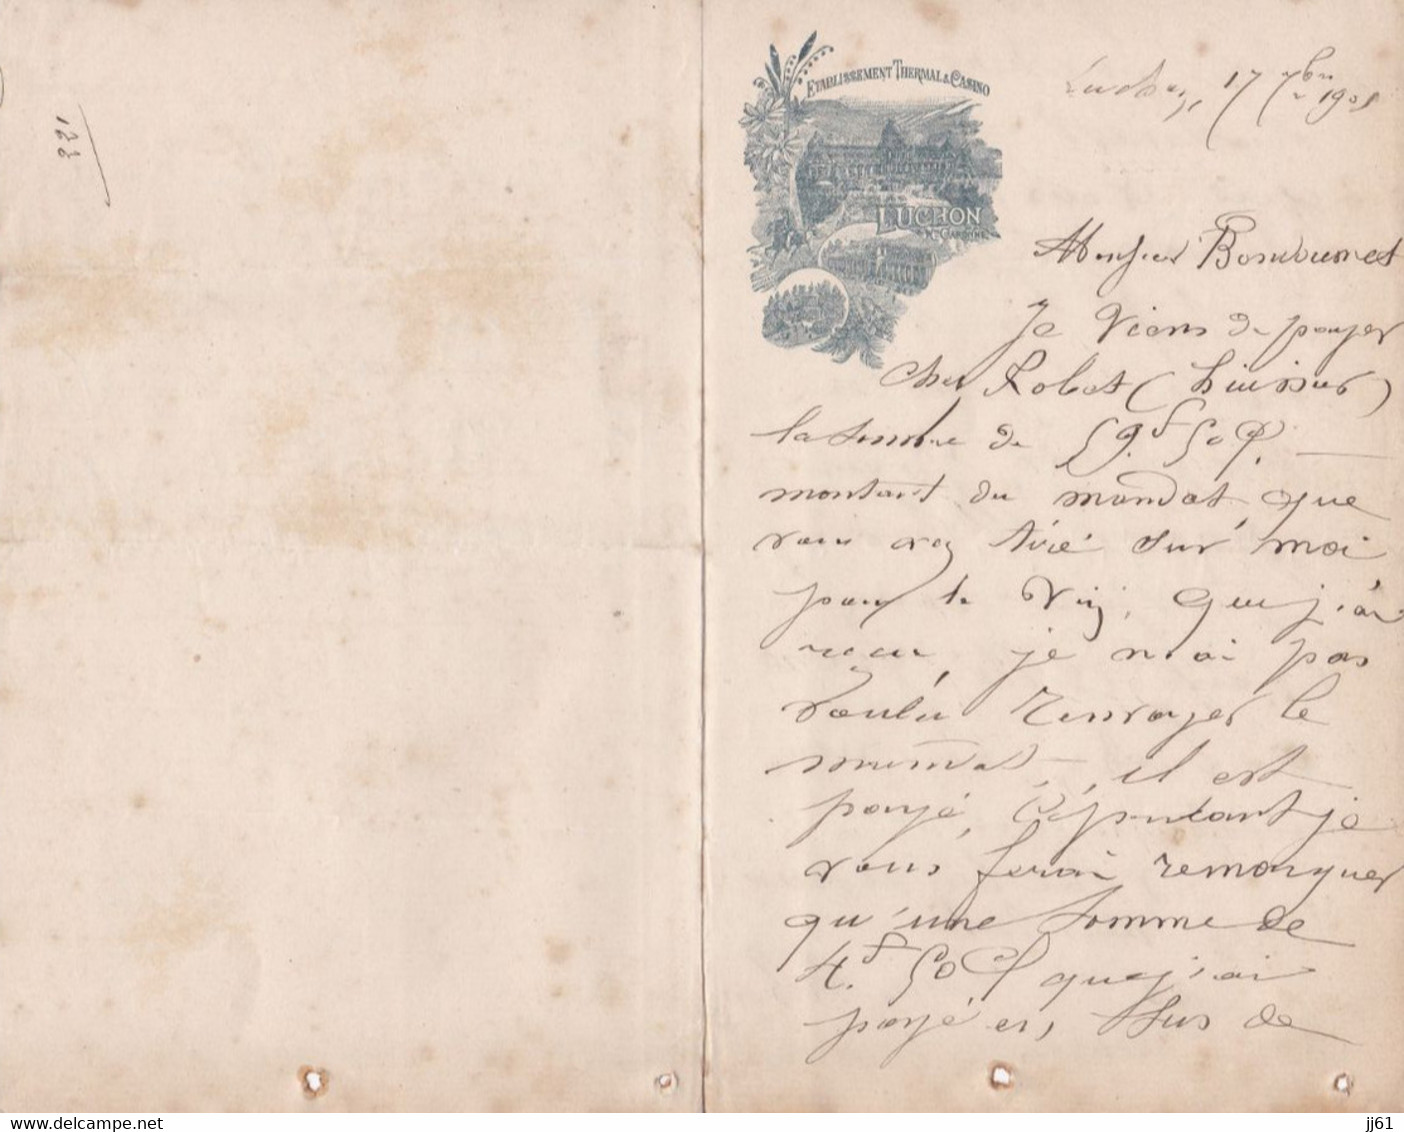 133
ETABLISSEMENT THERMAL & CASINO
LUCHON
Hte GARONNE
Luchon, 17 7bre 1905
Monsieur
Je viens de payer
chez Robet (huissier)
la somme de 59.f 50 c.
montant du mandat que
vous avez tiré sur moi
pour le vin, que j'ai
reçu, je n'ai pas
voulu renvoyer le
mandat, il est
payé, cependant je
vous ferai remarquer
qu'une somme de
4.f 50 c que j'ai
payé en sus de
www.delcampe.net
jj61